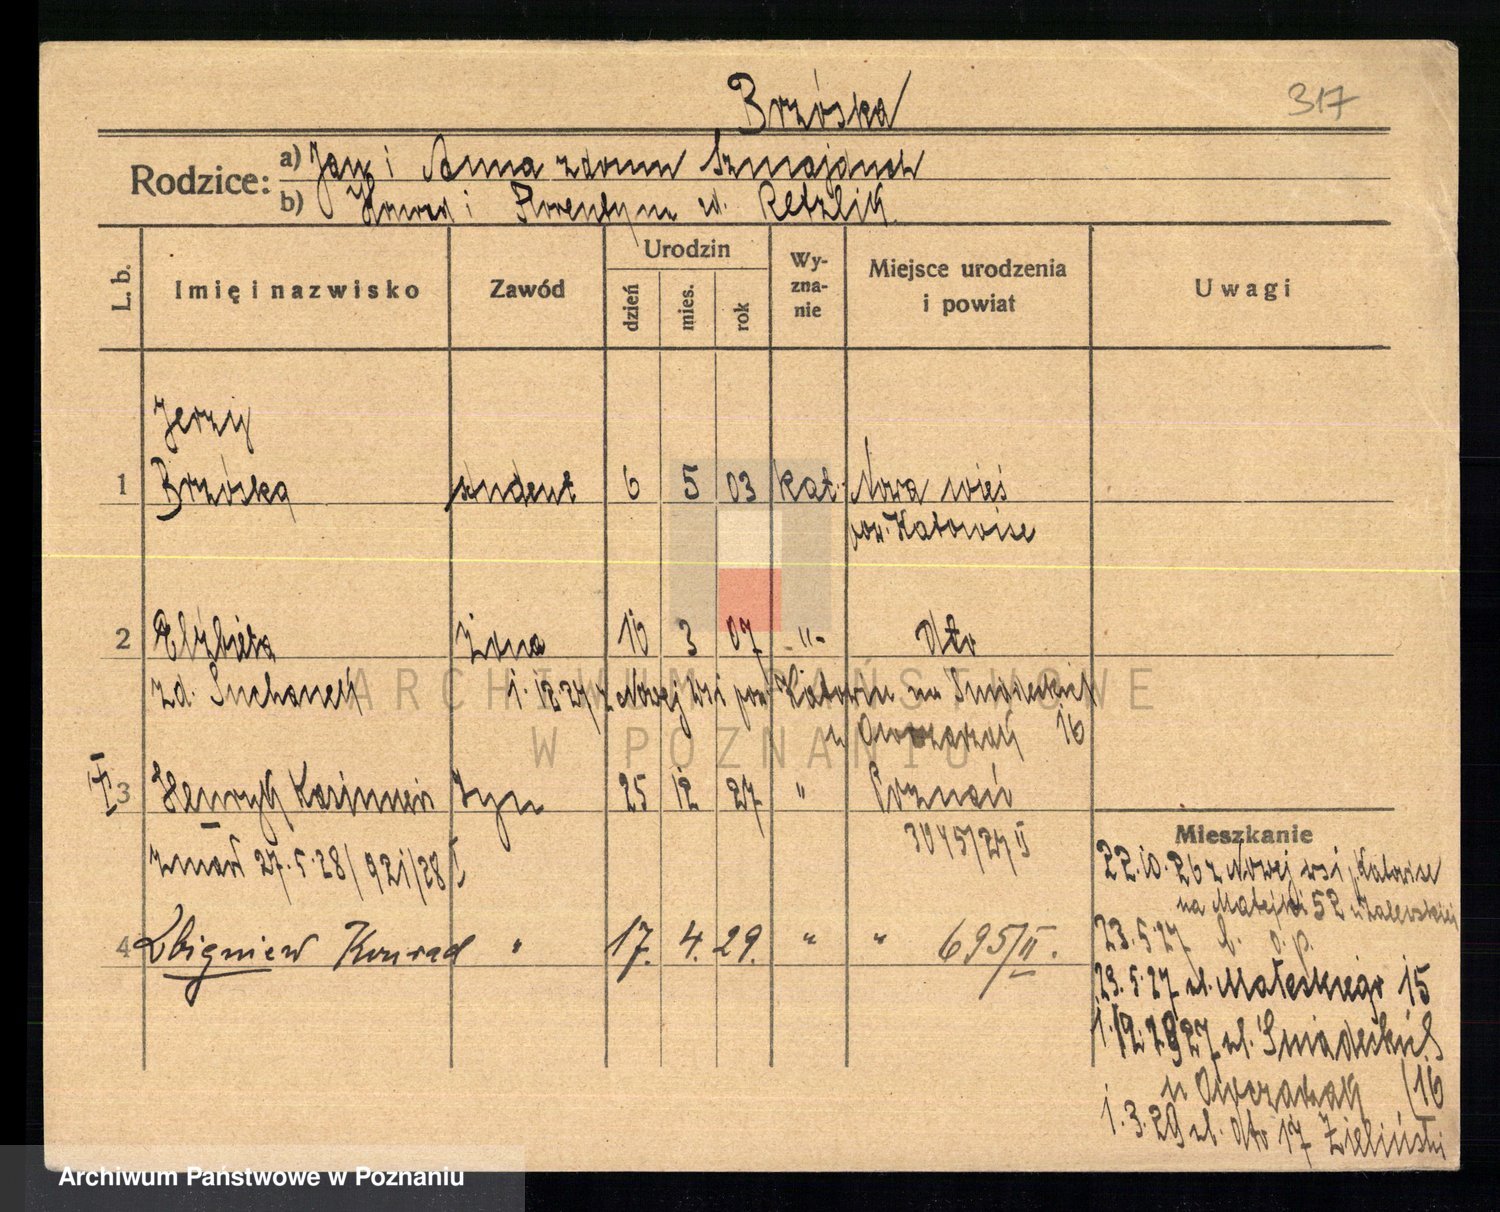 Brzóska
317
Rodzice: a) Jan i Anna z domu Szmajduch
b) i Florentyna d. Retzlik
L. b.
Imię i nazwisko
Zawód
Urodzin
dzień
mies.
rok
Wy-
zna-
nie
Miejsce urodzenia
i powiat
Uwagi
Jerzy
1 Brzóska student 6 5 03 kat. Nowa wieś
pow. Katowice
2 Elżbieta żona 16 3 07 -"- dto
zd. Suchanek 1.12.27 z Nowej Wsi pow. Katowice na Śniadeckich
u Owczarzak 16
3 Henryk Kazimierz syn 25 12 27 " Poznań
3045/27 II
zmarł 27.5.28/921/28 I
4 Zbigniew Konrad " 17. 4. 29. " " 695/II.
Mieszkanie
22.10.26 z Nowej wsi, Katowice
na Matejki 52 u Zalewskiej
23.5.27 b. o. p.
23.5.27 ul. Małeckiego 15
1.12.1927 ul. Śniadeckich
u Owczarzak (16
1.3.29 ul. dto 17 Zieliński
ARCHIWUM PAŃSTWOWE
W POZNANIU
Archiwum Państwowe w Poznaniu